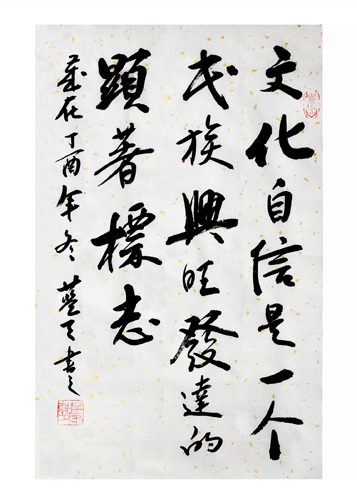 文化自信是一个
民族興旺發達的
顯著標志
歲在丁酉年冬 藍天書之